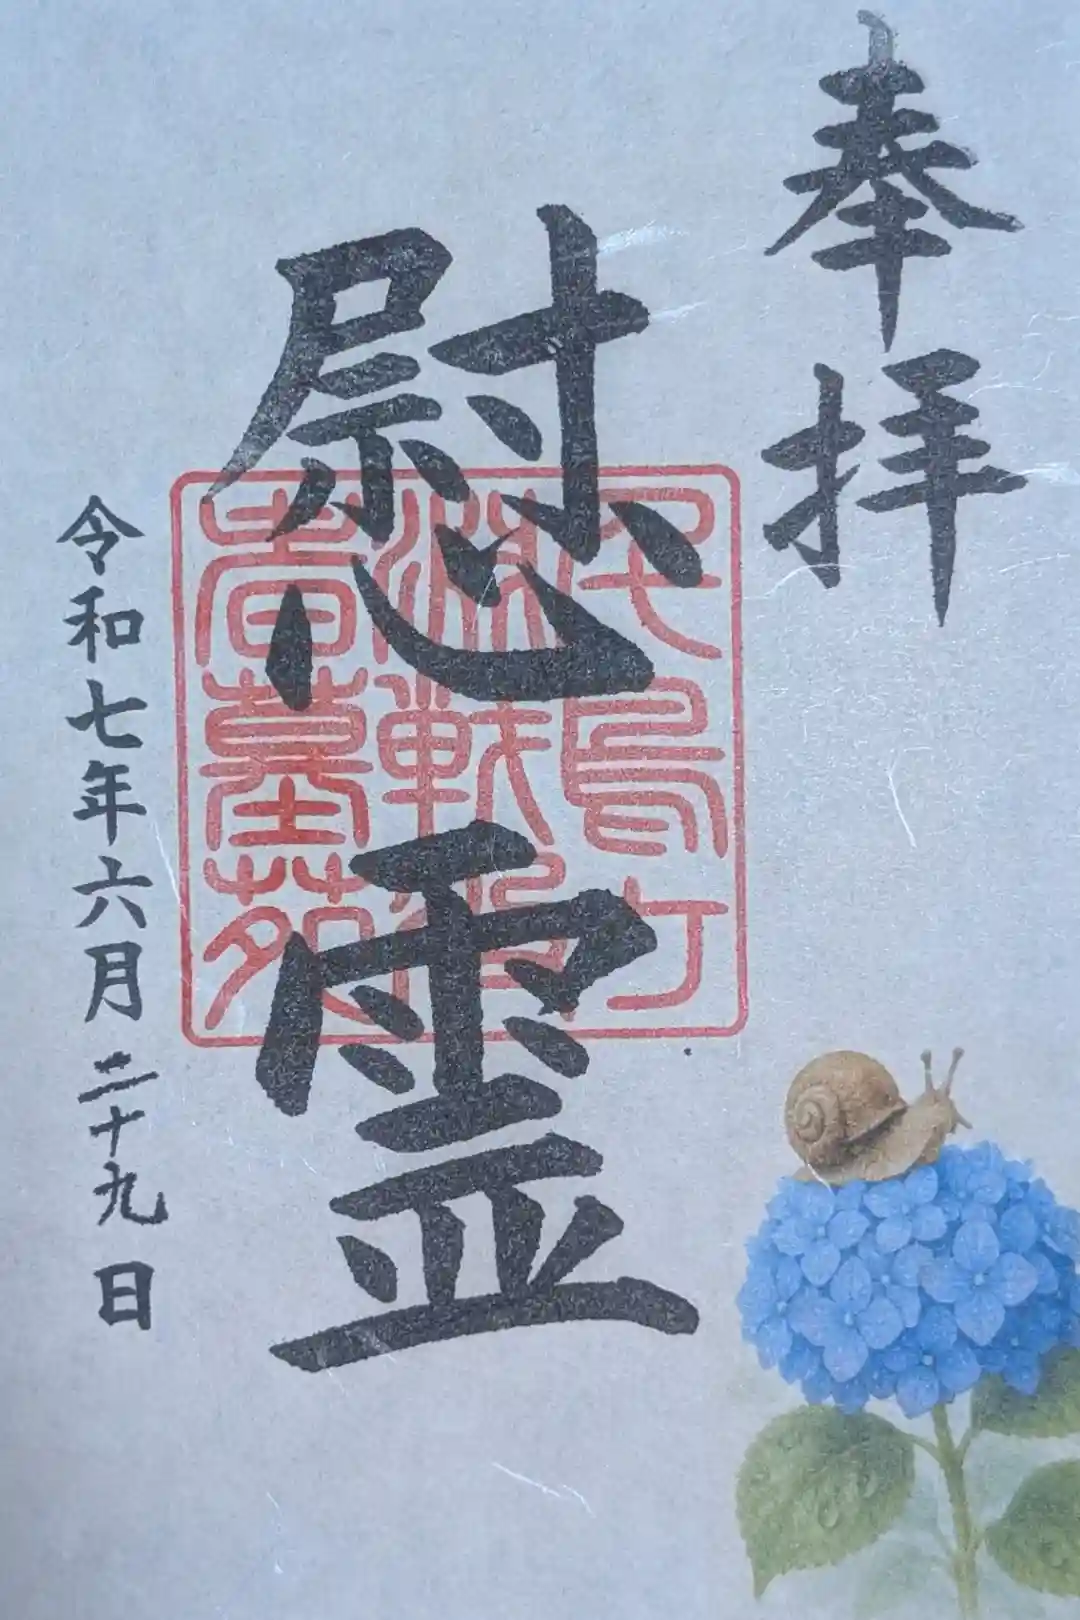 奉拝
慰霊
千鳥ケ
淵戦没
者墓苑
令和七年六月二十九日